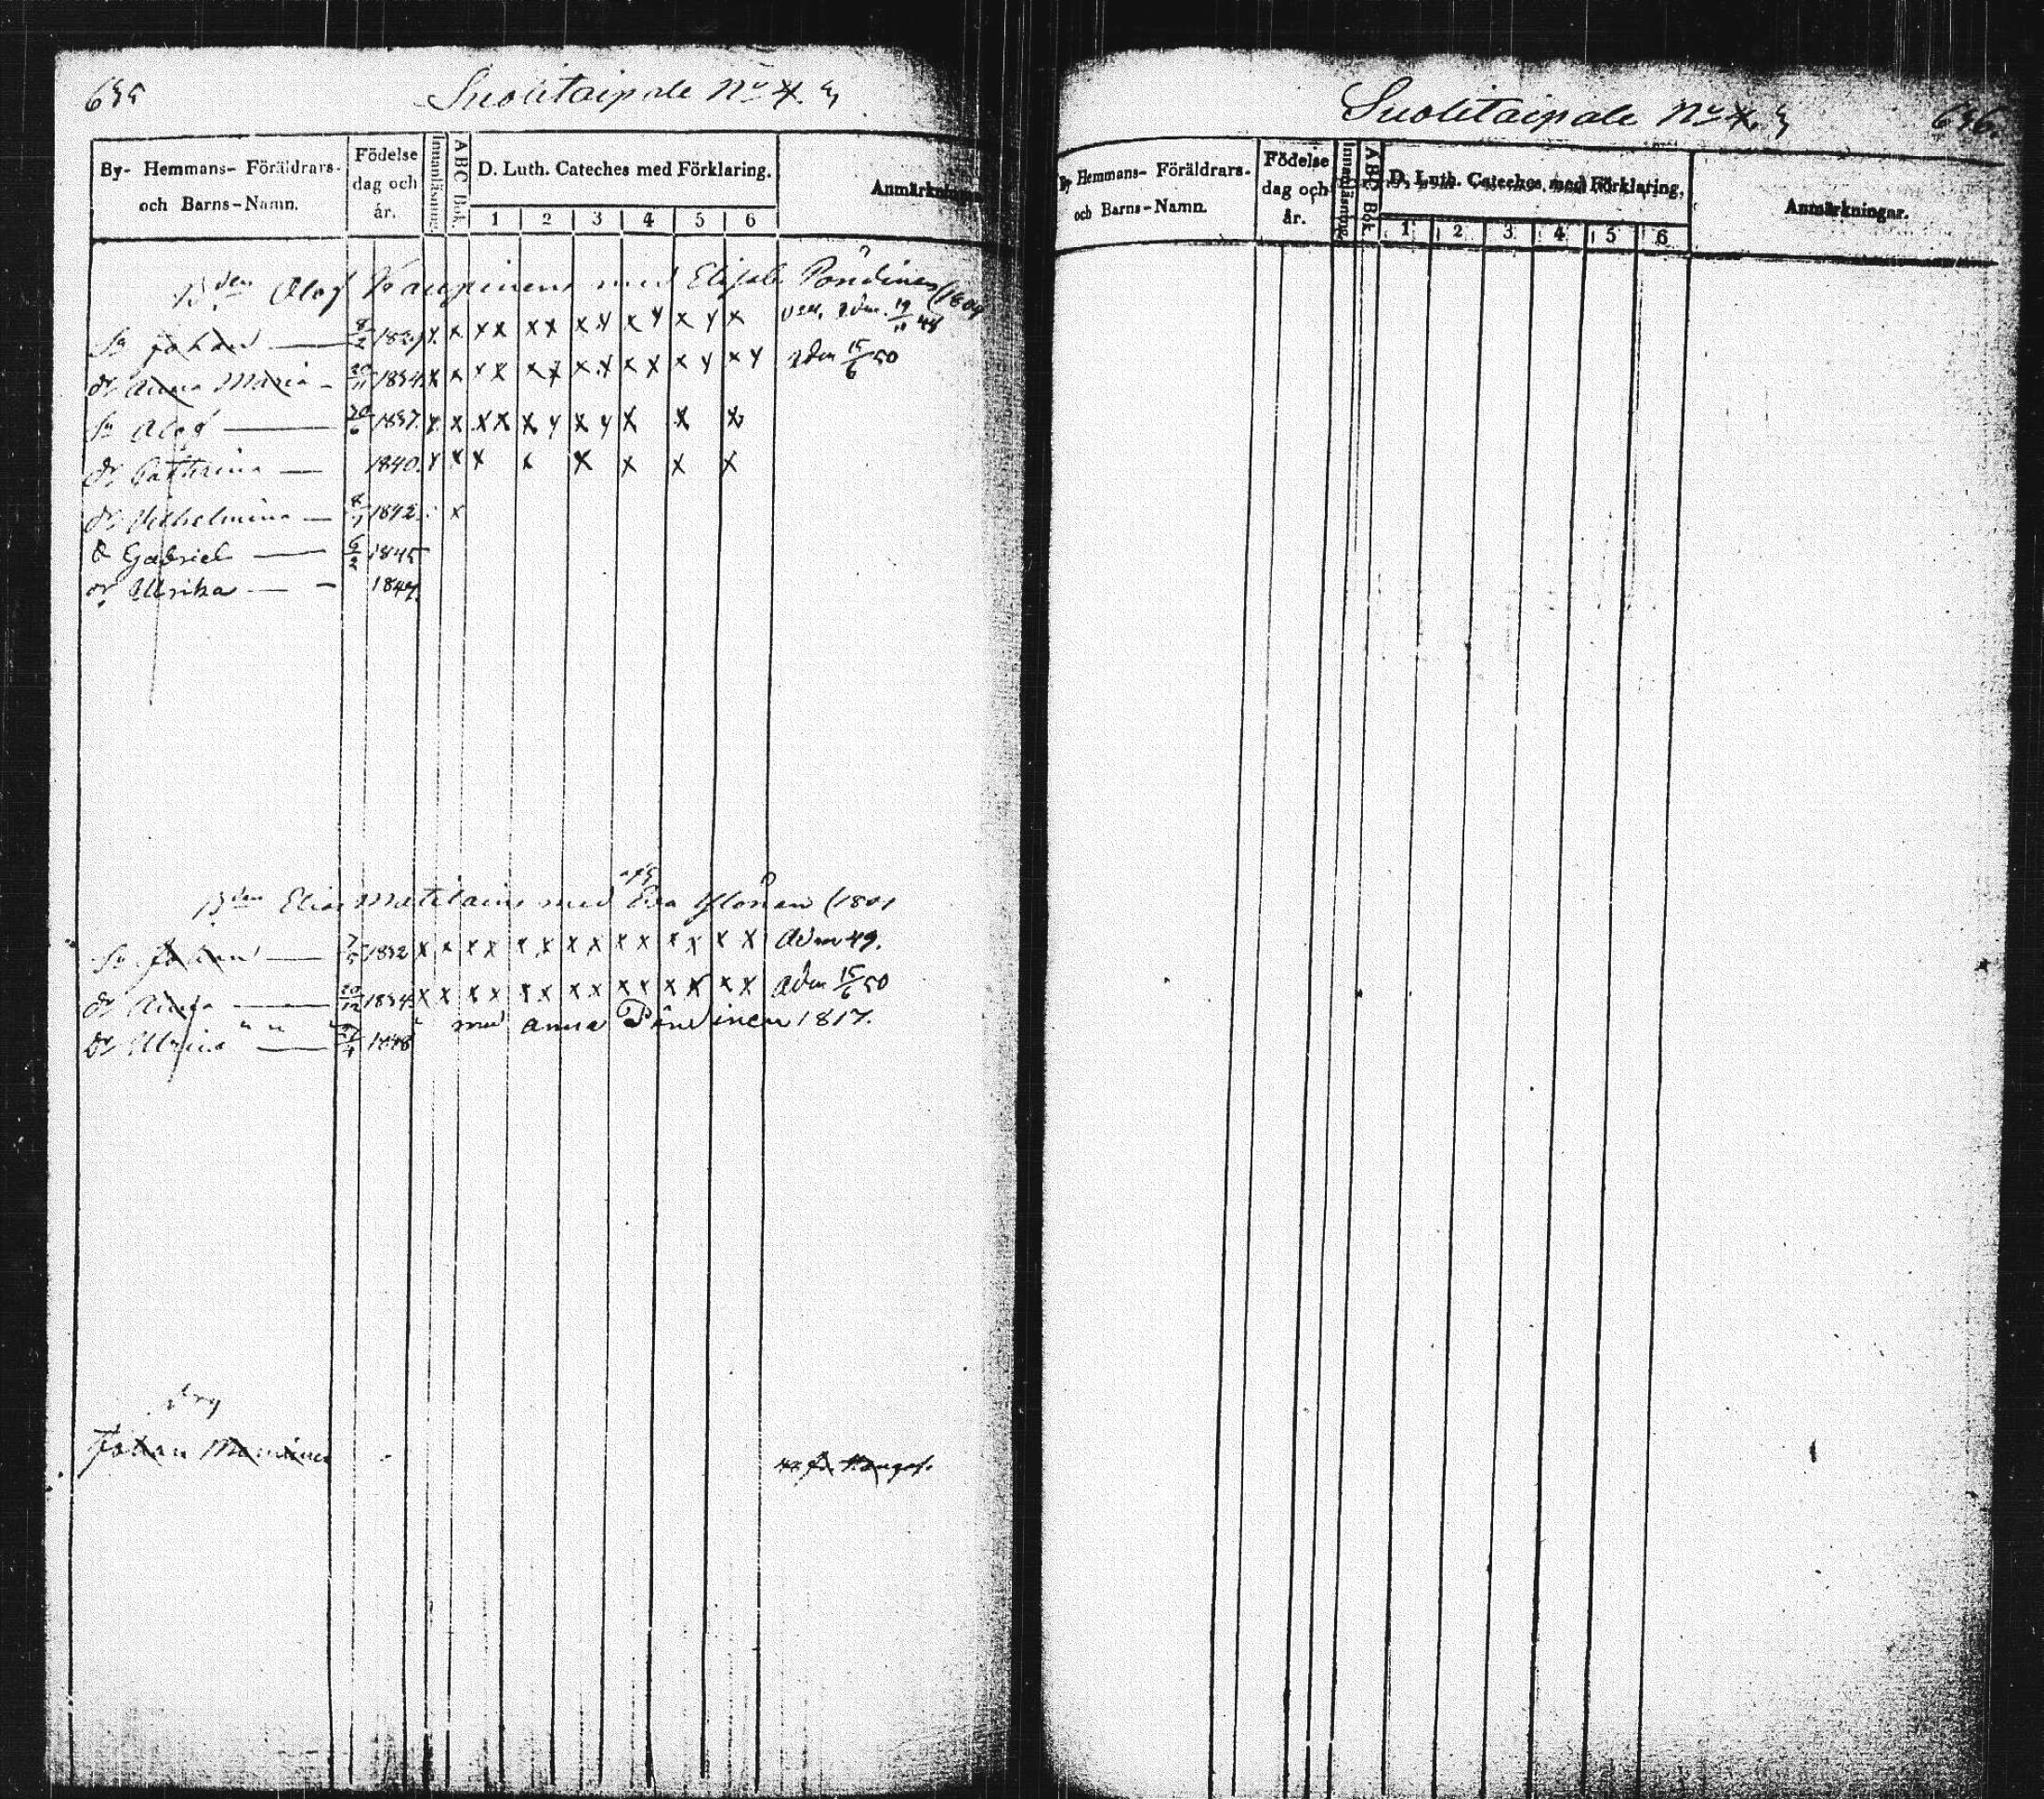 635
Suolitaipale No 4. 3
By- Hemmans- Föräldrars- och Barns-Namn.
Födelse dag och år.
Innanläsning.
A B C Bok.
D. Luth. Cateches med Förklaring.
1 2 3 4 5 6
Anmärkningar
Bden Olof Kaupinens med Elisab. Pöndinen (1804
Sn Johan — 8/2 1829 x x x x x x x y x y x y x adm. 19/11 48
dr Anna Maria — 1834 x x x x x x x y x x x y x y adm 15/6 50
Sn Olof — 20/6 1837 x x x x x y x y x x x
dr Cathrina — 1840. x x x x x x x x
dr Vilhelmina — 1842 x
Gabriel — 6/2 1845
dr Ulrika — 1847
Bden Elias Matilains med Eva (1801
Sn Johan — 1832 x x x x x x x x x x x x x x Adm 49.
dr Anna — 20/12 1834 x x x x x x x x x x x x x x adm 15/6 50
" " " " med Anna Pöndinen 1817.
dr Ulrica — 1848
Johan
Suolitaipale No 4. 3
636.
By Hemmans- Föräldrars- och Barns-Namn.
Födelse dag och år.
Innanläsning.
A B C Bok.
D. Luth. Cateches med Förklaring.
1 2 3 4 5 6
Anmärkningar.